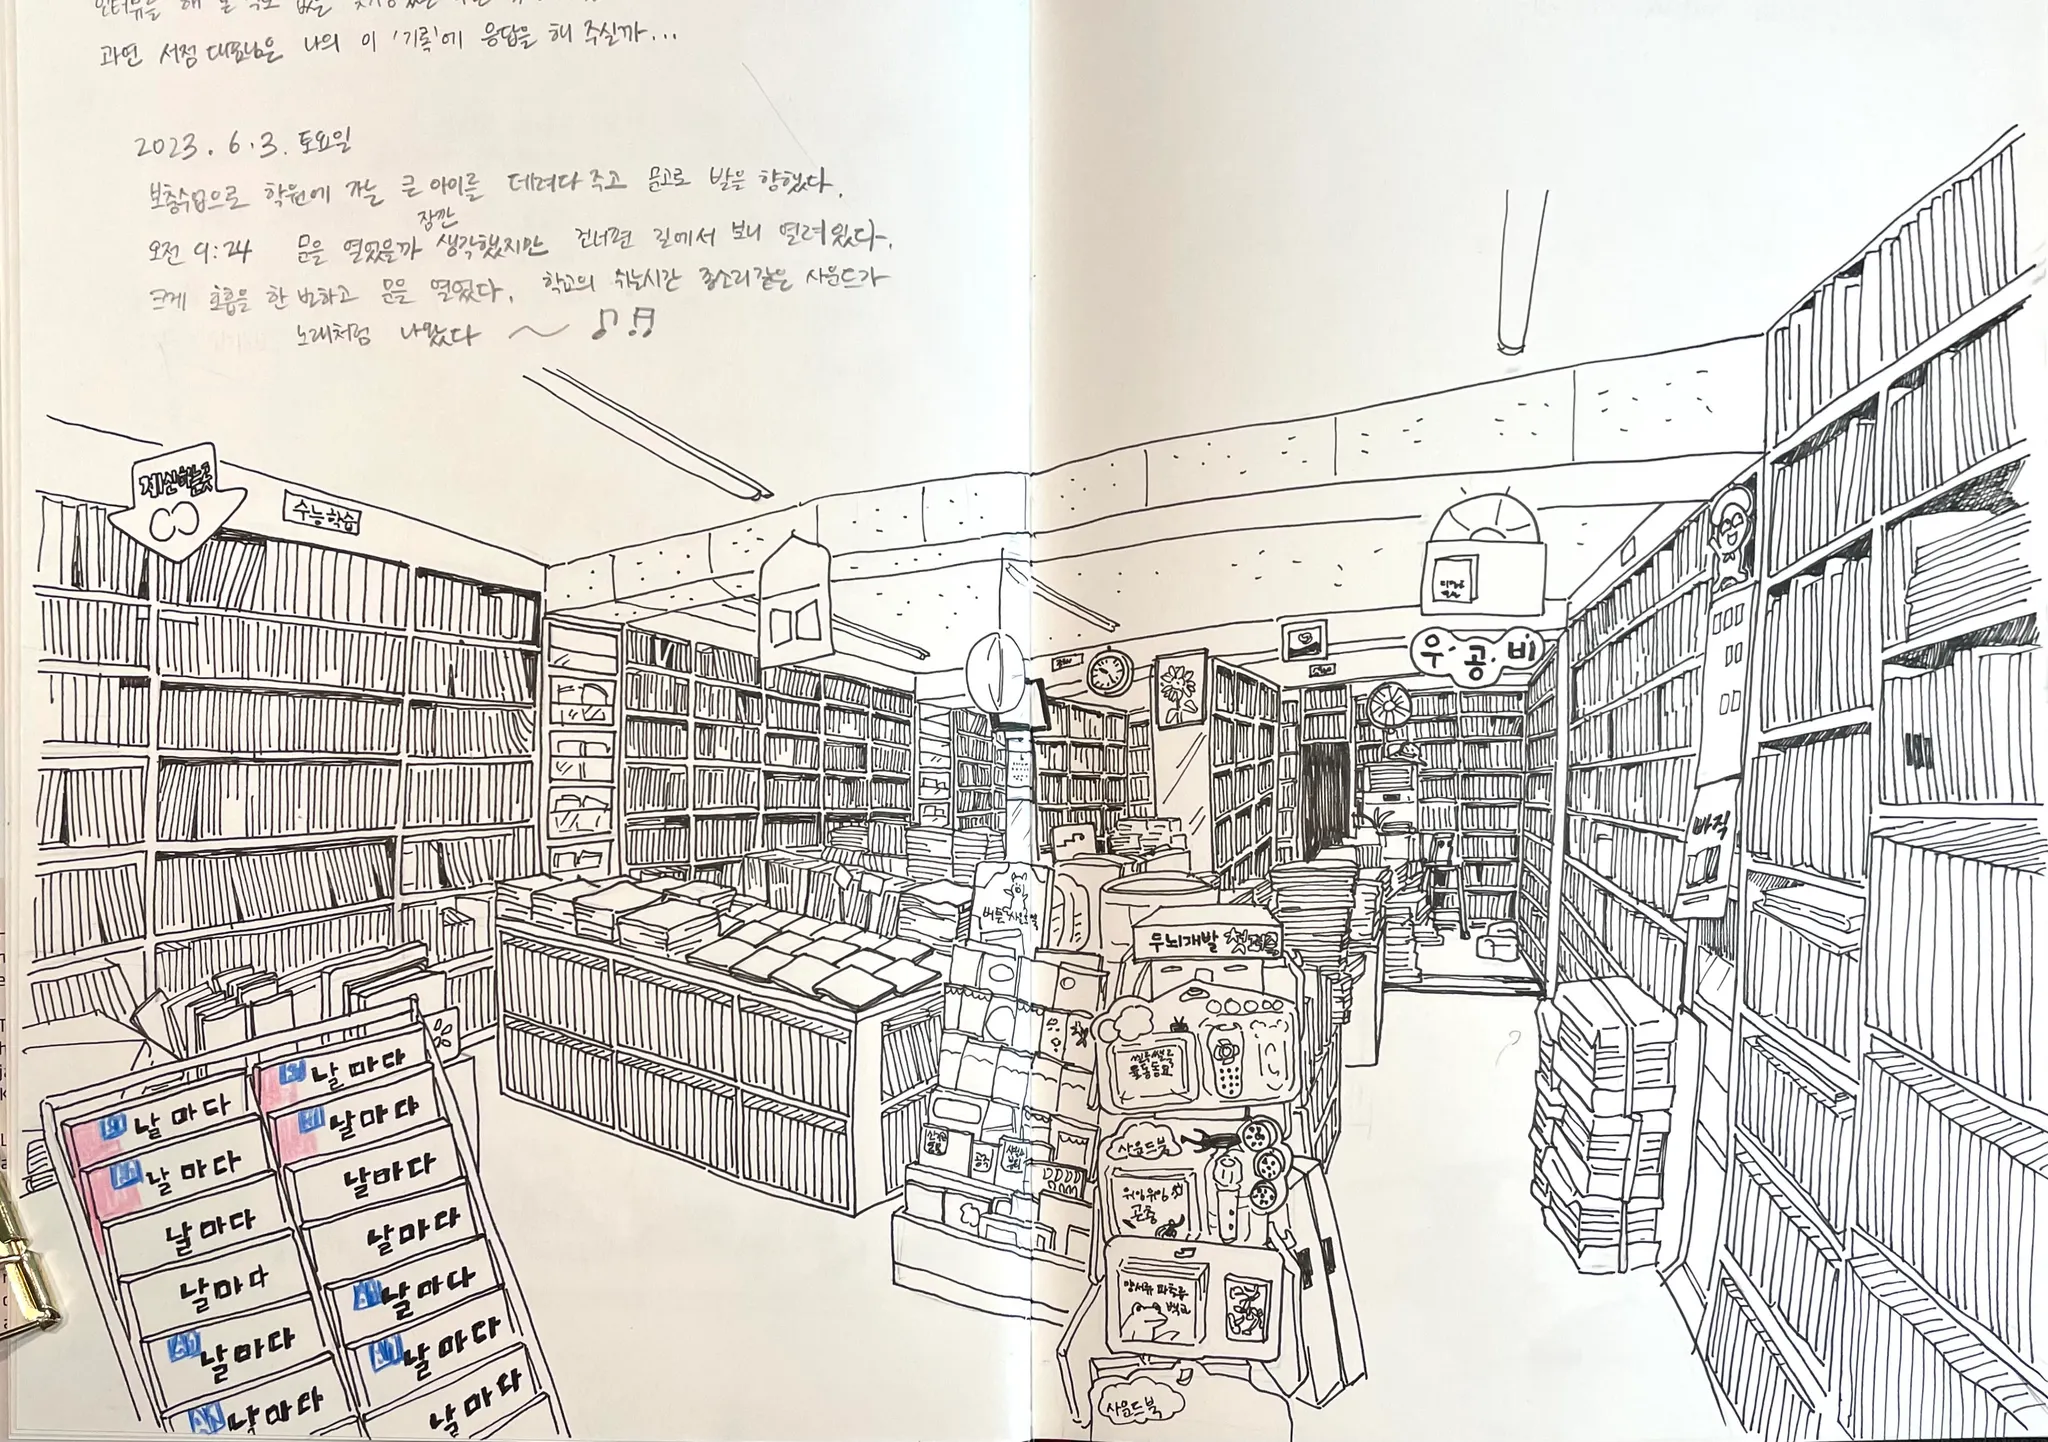 과연 서점 대표님은 나의 이 '기록'에 응답을 해 주실까...
2023. 6. 3. 토요일
보충수업으로 학원에 가는 큰 아이를 데려다 주고 문고로 발을 향했다.
오전 9:24 문을 열었을까 잠깐 생각했지만 건너편 길에서 보니 열려있다.
크게 호흡을 한 번하고 문을 열었다. 학교의 쉬는시간 종소리같은 사운드가
노래처럼 나왔다 ~ ♪ ♬
계산하는곳
수능학습
우·공·비
빠작
버튼 사운드북
두뇌개발
사운드북
곤충
양서류 파충류
백과
사운드북
날마다
날마다
날마다
날마다
날마다
날마다
날마다
날마다
날마다
날마다
날마다
날마다
날마다